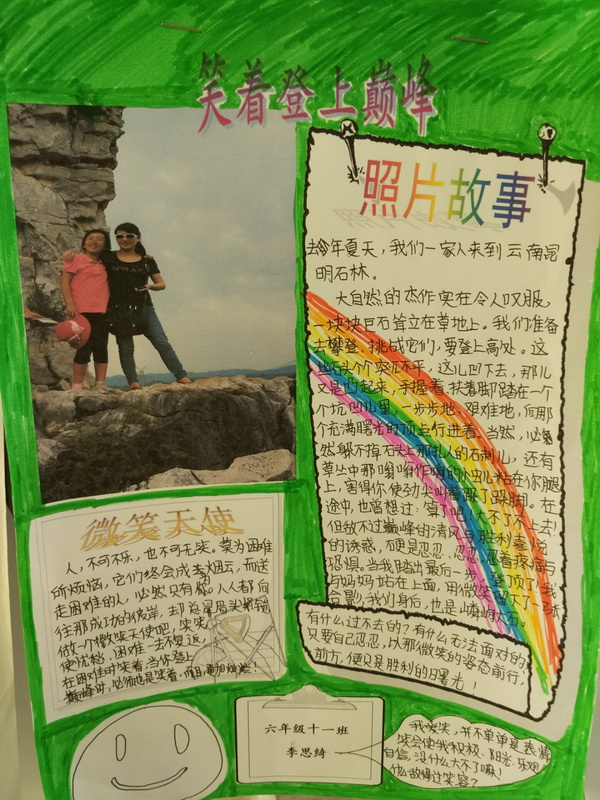 笑着登上巅峰
照片故事
今年夏天，我们一家人来到云南昆
明石林。
大自然的杰作实在令人叹服，
一块块巨石耸立在草地上。我们准备
去攀登、挑战它们，要登上高处。这
些石头个个突兀不平，这儿凹下去，那儿
又是凸起来，手抠着，扶着脚踏在一个
个坑凹儿里，一步步地、艰难地，向那
个充满曙光的顶点行进着。当然，必
然躲不掉石头上那扎人的石刺儿，还有
草丛中那嗡嗡作响的小虫儿粘在你腿
上，害得你使劲尖叫着跺了跺脚。在
途中，也曾想过：算了吧！大不了不上去！
但敌不过巅峰的清风与胜利喜悦
的诱惑，不便是忍忍，忍忍，忍着疼痛与
恐惧。当我踏出最后一步，登顶了，我
与妈妈站在上面，用微笑留下了一张
合影，我们身后，也是山峰峭大石。
有什么过不去的？有什么无法面对的？
只要自己忍忍，以那微笑的姿态前行，
前方，便只是胜利的曙光！
微笑天使
人，不可不乐，也不可无笑。莫为困难
所烦恼，它们终会成去烟云，而送
走困难的人，必然只有你，人人都向
往那成功的彼岸，却总是眉头紧锁
做一个微笑天使吧，笑笑，
使忧愁、困难一去不复返，
在困难时笑着，当你登上
巅峰时，必须也是笑着，而且，更加灿烂！
六年级十一班
李思绮
我爱笑，并不单单是表情，
笑会使我积极、阳光、乐观
自信，没什么大不了嘛！
什么敌得过笑容？